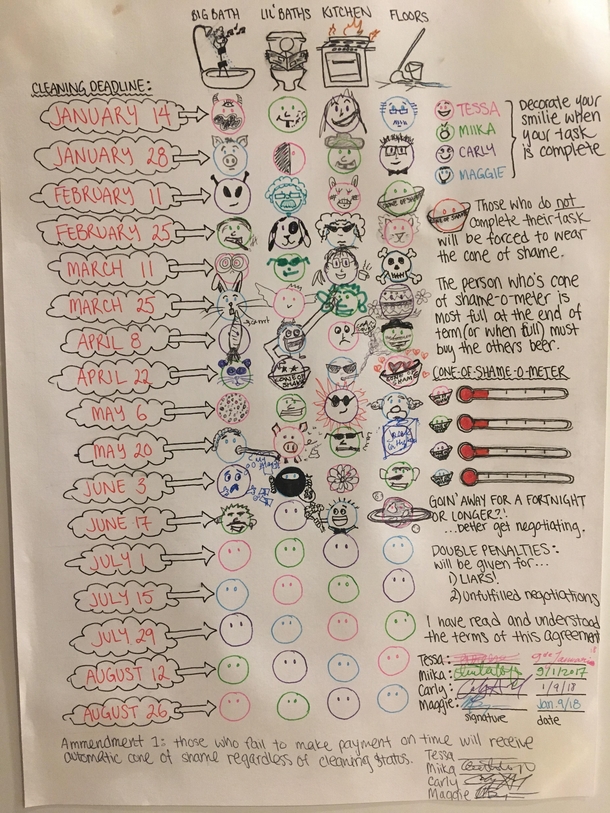 BIG BATH LIL' BATHS KITCHEN FLOORS
CLEANING DEADLINE:
JANUARY 14
JANUARY 28
FEBRUARY 11
FEBRUARY 25
MARCH 11
MARCH 25
APRIL 8
APRIL 22
MAY 6
MAY 20
JUNE 3
JUNE 17
JULY 1
JULY 15
JULY 29
AUGUST 12
AUGUST 26
TESSA
MIIKA
CARLY
MAGGIE
Decorate your
smilie when
your task
is complete
Those who do not
complete their task
will be forced to wear
the cone of shame.
The person who's cone
of shame-o-meter is
most full at the end of
term (or when full) must
buy the others beer.
CONE-OF-SHAME-O-METER
GOIN' AWAY FOR A FORTNIGHT
OR LONGER?!
...better get negotiating.
DOUBLE PENALTIES:
will be given for...
1) LIARS!
2) unfulfilled negotiations
I have read and understood
the terms of this agreement
Tessa:
Miika: 9/1/2017
Carly: 1/9/18
Maggie: Jan.9/18
signature date
Ammendment 1: those who fail to make payment on time will receive
automatic cone of shame regardless of cleaning status.
Tessa
Miika
Carly
Maggie